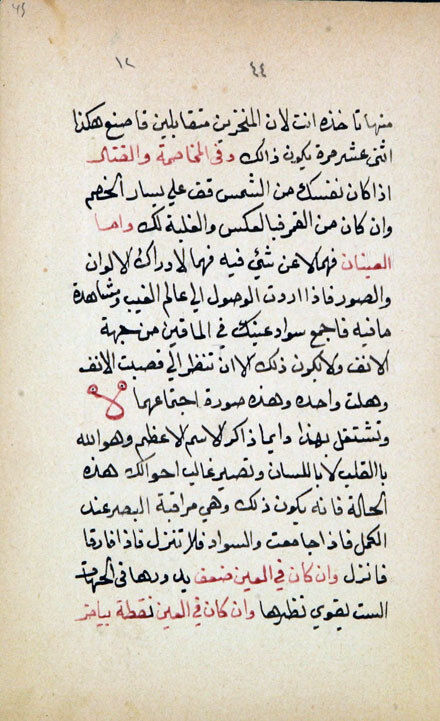 ٤٤
١٢
منها تاخذه انت لان المنخرين متقابلين فاصنع هكذا
اثنى عشر مرة يكون ذالك وفي المخاصمة والقتال
اذا كان نفسك من الشمس قف على يسار الخصم
وان كان من القمر فبالعكس والغلبة لك واما
العينان فهما لاعن شئ فيه فهما لادراك الالوان
والصور فاذا اردت الوصول الى عالم الغيب ومشاهدة
مافيه فاجمع سواد عينك في الماقين من جهة
الانف ولايكون ذلك لا ان تنظر الى قصبت الانف
وهلت واحده وهذه صورة اجتماعهما
وتشتغل بهذا دايما ذاكر الاسم لاعظم وهو الله
باالقلب لا باللسان وتصير غالب احوالك هذه
الحالة فانه يكون ذلك وهي مراقبة البصر عند
الكمل فاذا جامعت والسواد فلا تنزل فاذا فارقا
فانزل وان كان في العين ضعف يدورها في الجهات
الست يقوي نظرها وان كان في العين نقطة بياض